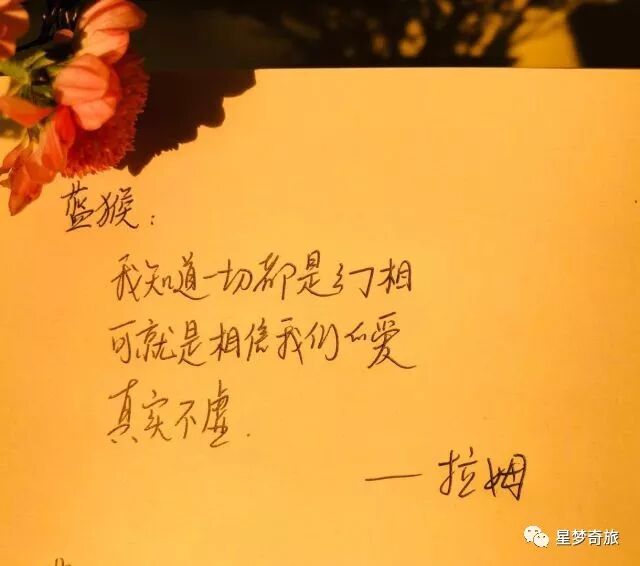 蓝猴：
我知道一切都是幻相
可就是相信我们的爱
真实不虚.
—拉姆
星梦奇旅